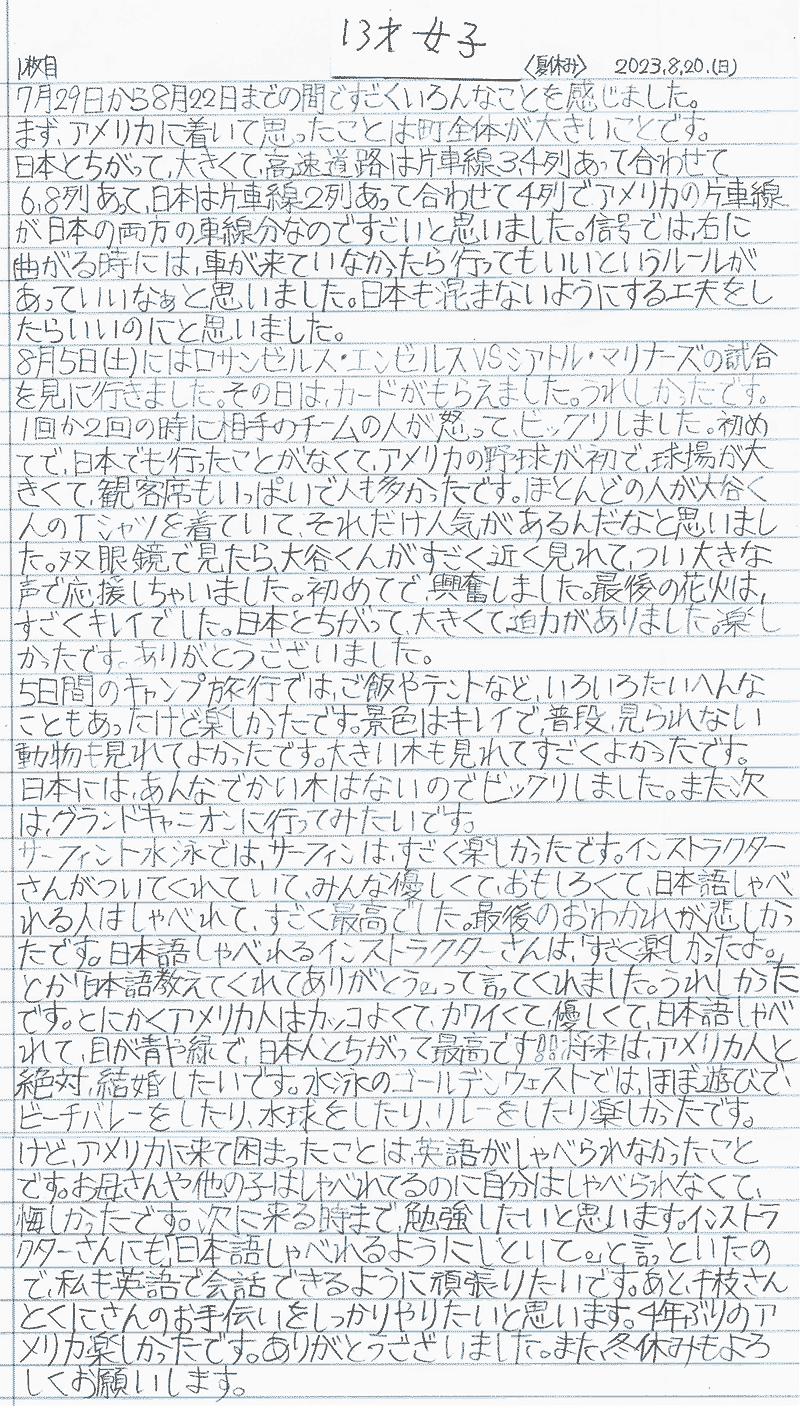 13才 女子
1枚目
〈夏休み〉 2023.8.20.(日)
7月29日から8月22日までの間ですごくいろんなことを感じました。
まず、アメリカに着いて思ったことは町全体が大きいことです。
日本とちがって、大きくて、高速道路は片車線3,4列あって合わせて
6,8列あって、日本は片車線2列あって合わせて4列でアメリカの片車線
が日本の両方の車線分なのですごいと思いました。信号では、右に
曲がる時には、車が来ていなかったら行ってもいいというルールが
あっていいなぁと思いました。日本も混まないようにする工夫をし
たらいいのにと思いました。
8月5日(土)にはロサンゼルス・エンゼルスVSシアトル・マリナーズの試合
を見に行きました。その日は、カードがもらえました。うれしかったです。
1回か2回の時に相手のチームの人が怒って、ビックリしました。初め
てで、日本でも行ったことがなくて、アメリカの野球が初で、球場が大
きくて、観客席もいっぱいで人も多かったです。ほとんどの人が大谷く
んのTシャツを着ていて、それだけ人気があるんだなと思いまし
た。双眼鏡で見たら、大谷くんがすごく近く見れて、つい大きな
声で応援しちゃいました。初めてで、興奮しました。最後の花火は、
すごくキレイでした。日本とちがって、大きくて迫力がありました。楽し
かったです。ありがとうございました。
5日間のキャンプ旅行では、ご飯やテントなど、いろいろたいへんな
こともあったけど楽しかったです。景色はキレイで、普段、見られない
動物も見れてよかったです。大きい木も見れてすごくよかったです。
日本には、あんなでかい木はないのでビックリしました。また次
は、グランドキャニオンに行ってみたいです。
サーフィント水泳では、サーフィンは、すごく楽しかったです。インストラクター
さんがついてくれていて、みんな優しくて、おもしろくて、日本語しゃべ
れる人はしゃべれて、すごく最高でした。最後のおわかれが悲しかっ
たです。日本語しゃべれるインストラクターさんは、「すごく楽しかったよ。」
とか「日本語教えてくれてありがとう。」って言ってくれました。うれしかった
です。とにかくアメリカ人はカッコよくて、カワイくて、優しくて、日本語しゃべ
れて、目が青や緑で、日本人とちがって最高です!!将来は、アメリカ人と
絶対、結婚したいです。水泳のゴールデンウェストでは、ほぼ遊びで、
ビーチバレーをしたり、水球をしたり、リレーをしたり楽しかったです。
けど、アメリカに来て困まったことは、英語がしゃべられなかったこと
です。お母さんや他の子はしゃべれてるのに自分はしゃべられなくて、
悔しかったです。次に来る時まで、勉強したいと思います。インストラ
クターさんにも「日本語しゃべれるようにしといて。」と言っといたの
で、私も英語で会話できるように頑張りたいです。あと、千枝さん
とくにさんのお手伝いをしっかりやりたいと思います。4年ぶりのア
メリカ楽しかったです。ありがとうございました。また、冬休みもよろ
しくお願いします。